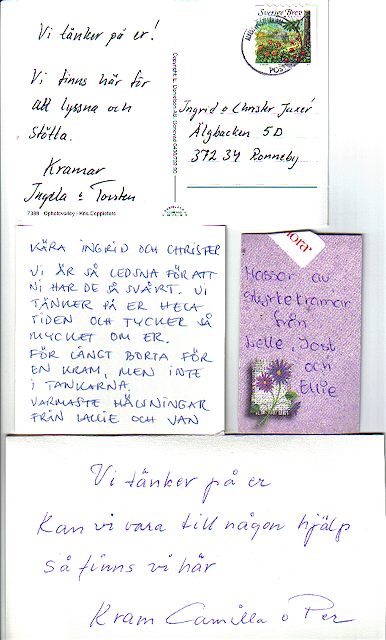 Vi tänker på er!
Vi finns här för
att lyssna och
stötta.
Kramar
Ingela & Torsten
Sverige Brev
POST
Ingrid o Christer Juxér
Älgbacken 5D
372 34 Ronneby
KÄRA INGRID OCH CHRISTER
VI ÄR SÅ LEDSNA FÖR ATT
NI HAR DE SÅ SVÅRT. VI
TÄNKER PÅ ER HELA
TIDEN OCH TYCKER SÅ
MYCKET OM ER.
FÖR LÅNGT BORTA FÖR
EN KRAM, MEN INTE
I TANKARNA.
VARMASTE HÄLSNINGAR
FRÅN LALLIE OCH VAN
Massor av
styrkekramar
från
Jost
och
Ellie
Vi tänker på er
Kan vi vara till någon hjälp
så finns vi här
Kram Camilla o Per